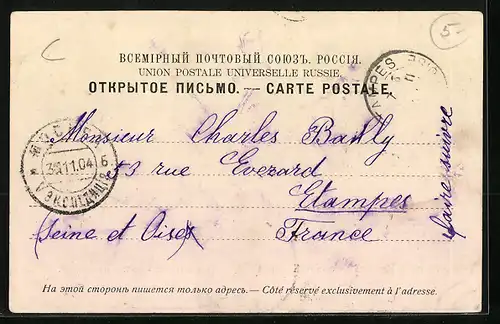 5-
ВСЕМІРНЫЙ ПОЧТОВЫЙ СОЮЗЪ. РОССІЯ.
UNION POSTALE UNIVERSELLE RUSSIE.
ОТКРЫТОЕ ПИСЬМО. — CARTE POSTALE.
Monsieur Charles Bailly
53 rue Evezard
Etampes
(Seine et Oise)
France
faire suivre
11.04
ЭКСПЕДИЦ
На этой сторонѣ пишется только адресъ. — Côté réservé exclusivement à l'adresse.